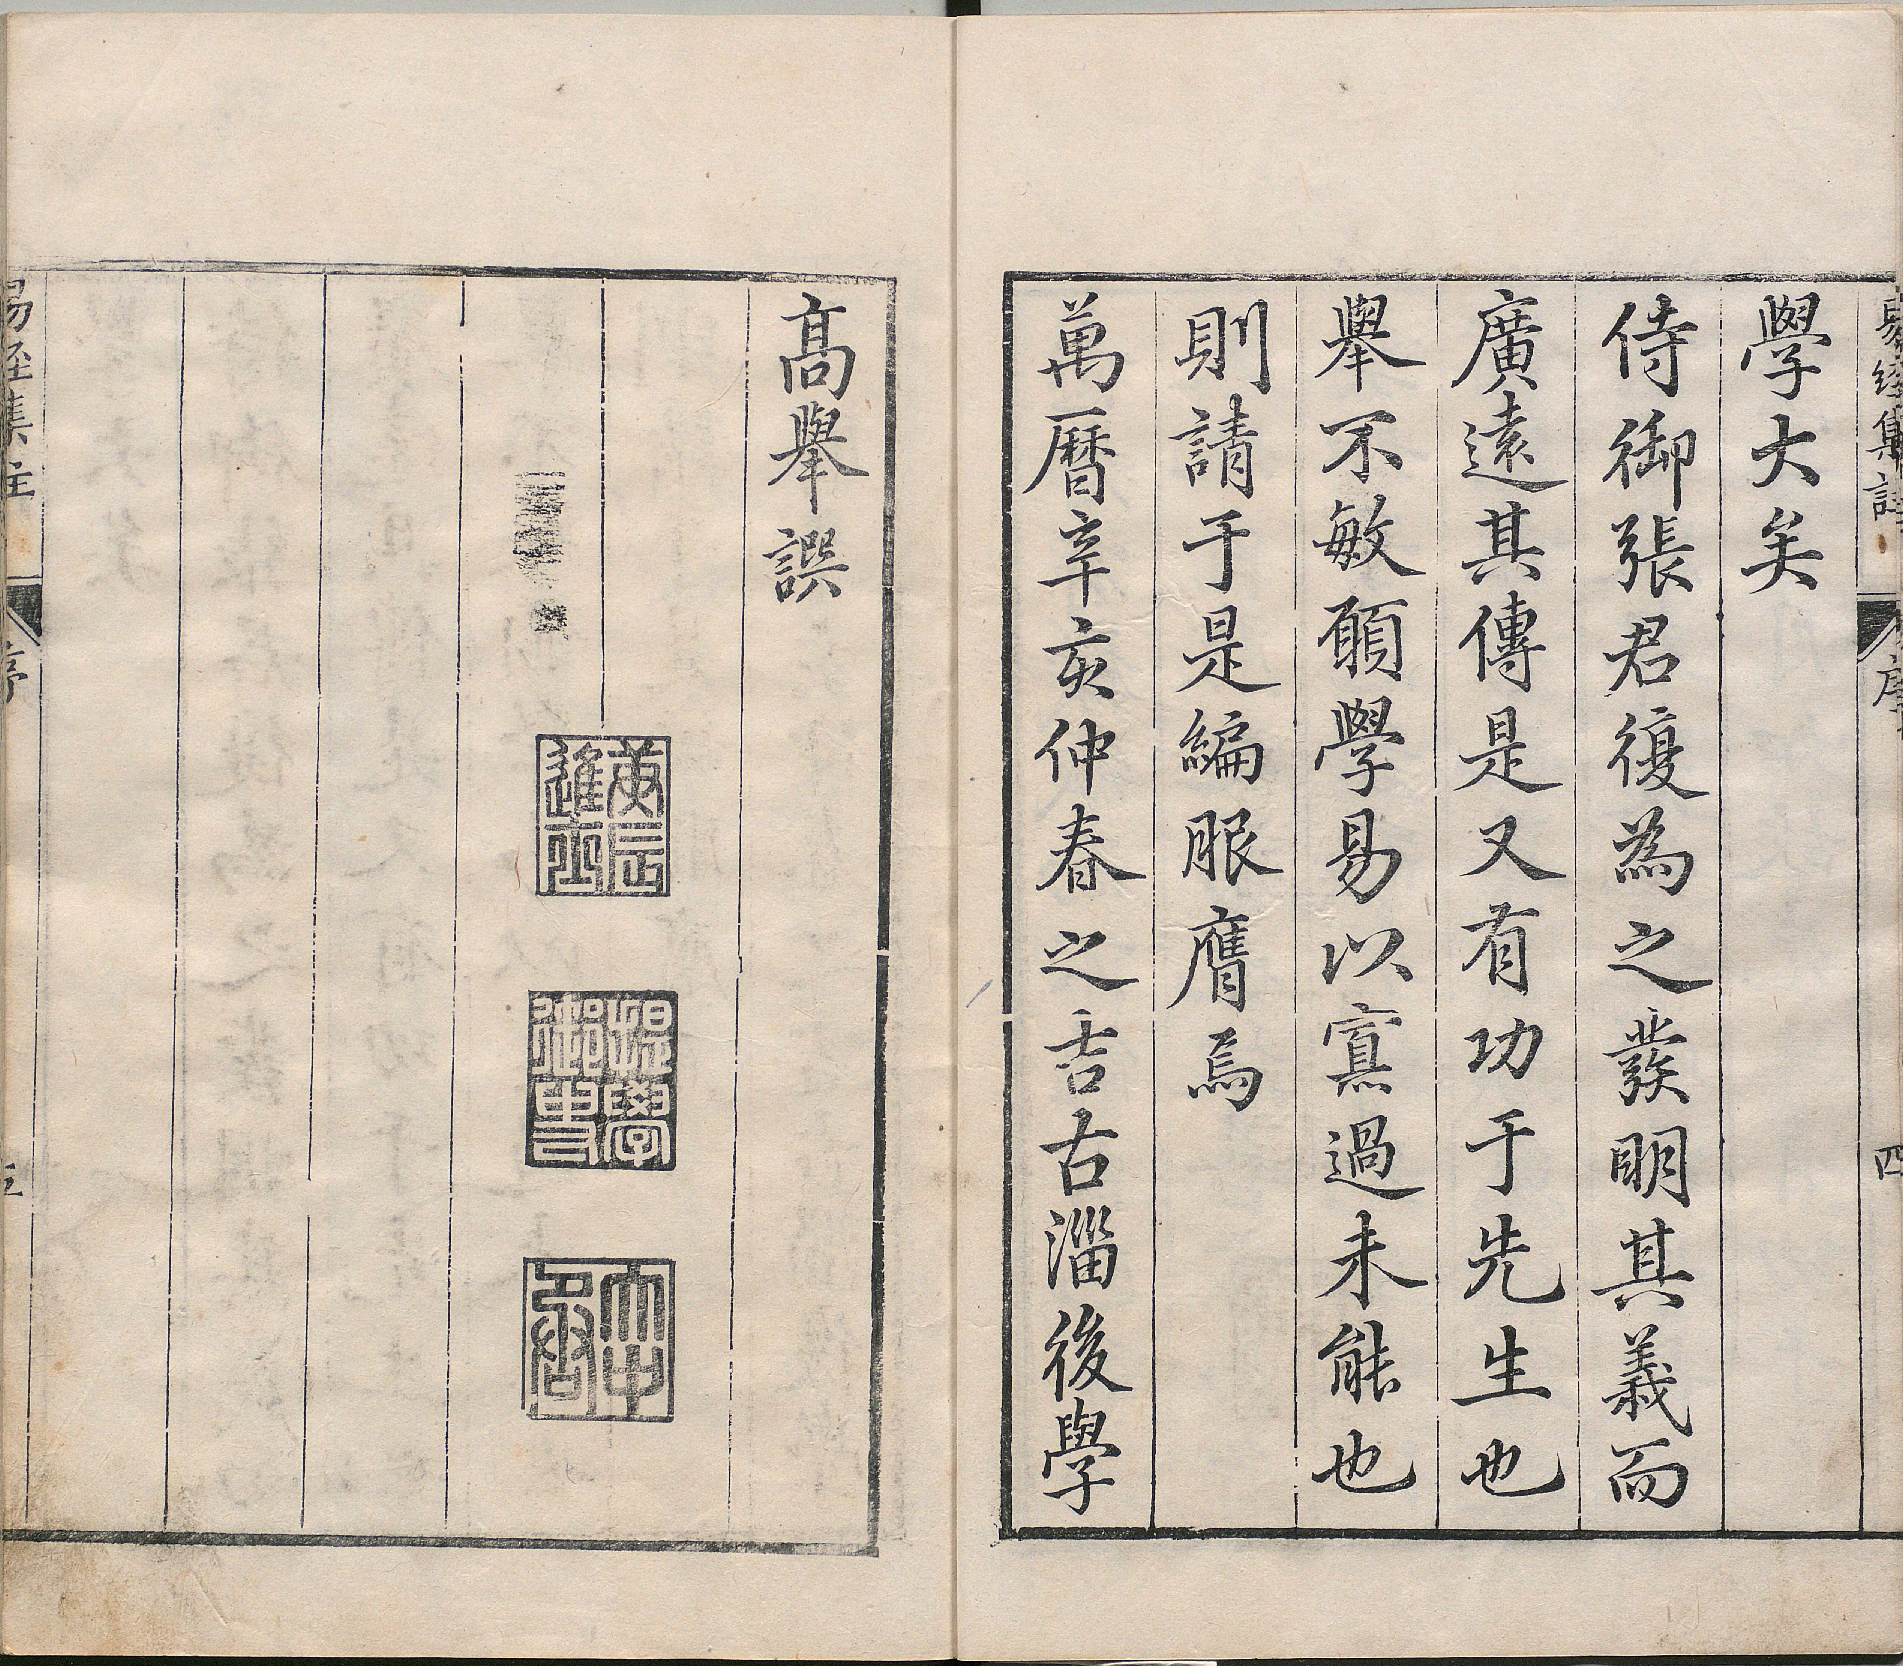 易經集註 序 四
學大矣
侍御張君復為之發明其義而
廣遠其傳是又有功于先生也
舉不敏願學易以寡過未能也
則請于是編服膺焉
萬曆辛亥仲春之吉古淄後學
高舉譔
庚辰進士
提學御史
易經集註 序 五